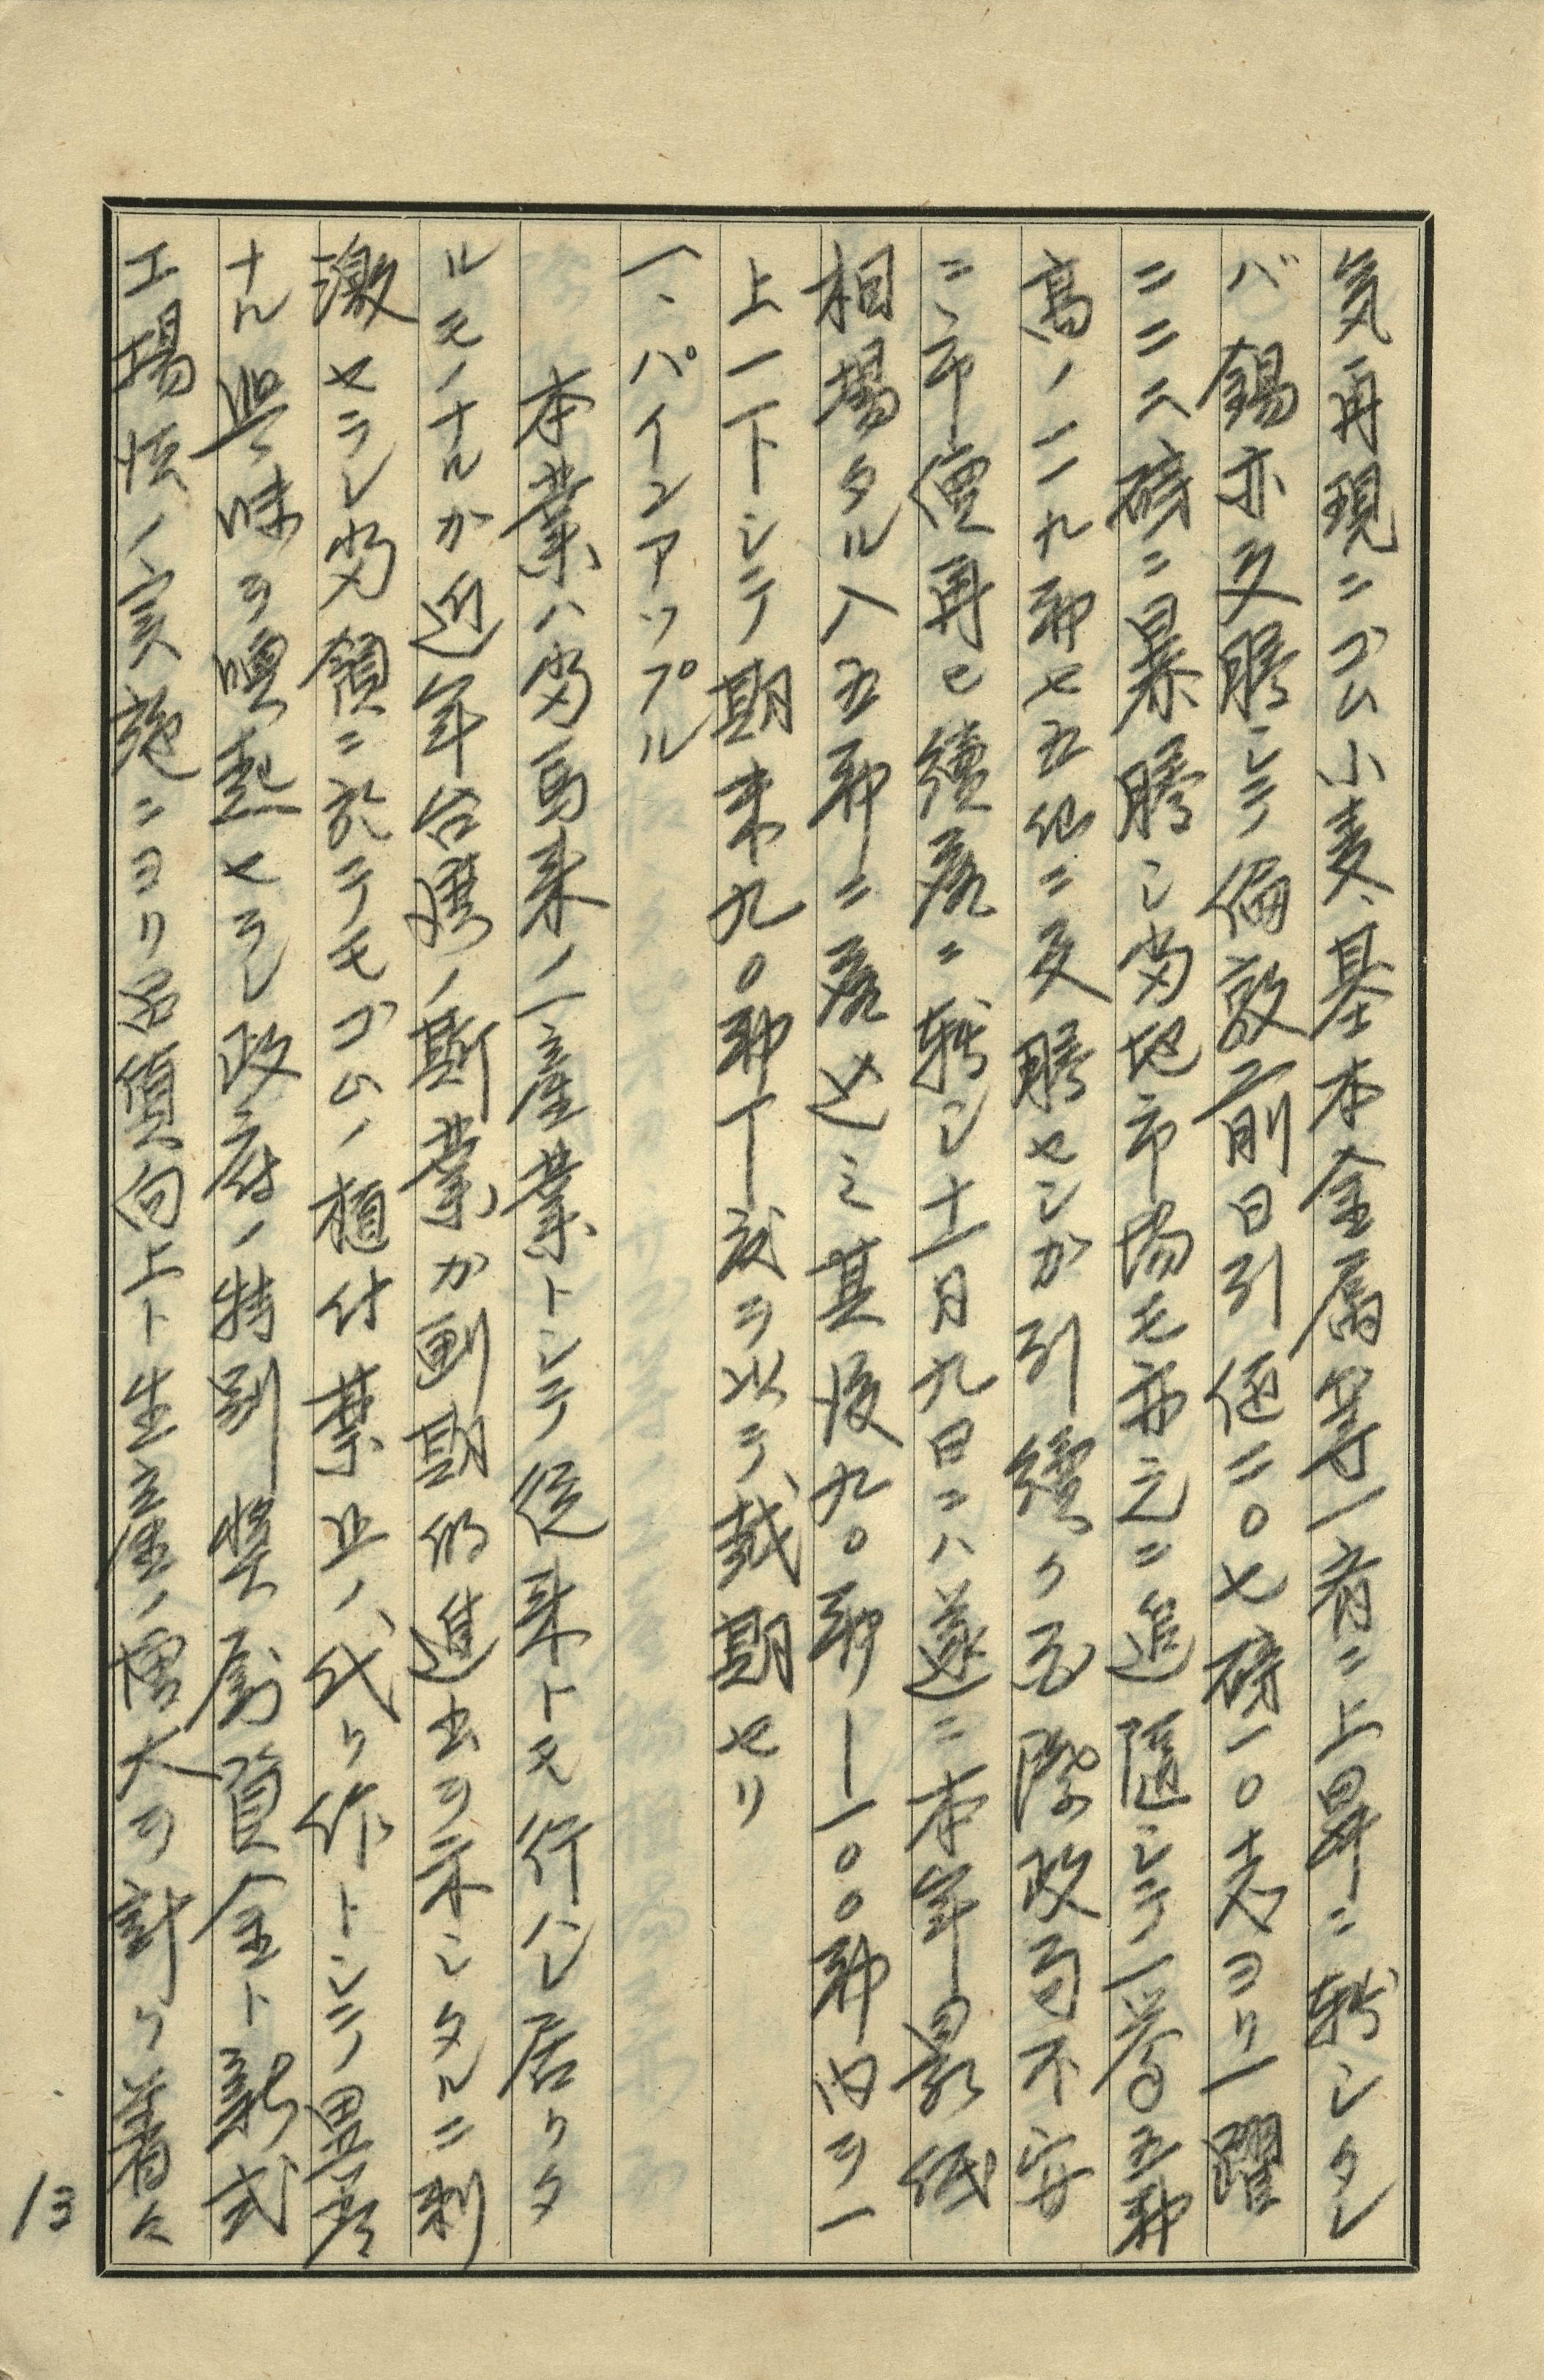 気再現ニゴム小麦、基本金属等一斉ニ上昇ニ転シタレ
バ錫亦反騰シテ倫敦前日引値二〇七磅一〇志ヨリ一躍
二二八磅ニ暴騰シ当地市場モ亦之ニ追随シテ一挙五弗
高ノ一一九弗七五仙ニ反騰セシか引續ク国際政局不安
ニ、市價再ヒ續落ニ転シ十一月九日ニハ遂ニ本年最低
相場タル八五弗ニ落込ミ其後九〇弗ー一〇〇弗内ヲ一
上一下シテ期末九〇弗丁度ヲ以テ、越期セリ
一、パインアップル
本業ハ当馬来ノ一産業トシテ従来トモ行ハレ居リタ
ルモノナルか近年台湾ノ斯業か画期的進出ヲ示シタルニ刺
激セラレ当領ニ於テモゴムノ植付禁止ノ、代リ作トシテ異常
ナル興味ヲ喚起セラレ政府ノ特別奨励資金ト新式
工場法ノ実施ニヨリ品質向上ト生産ノ増大ヲ計リ着々
13